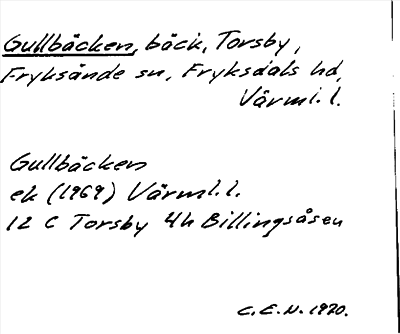 Gullbäcken, bäck, Torsby,
Fryksände sn, Fryksdals hd,
Värml. l.
Gullbäcken
ek (1969) Värml. l.
12 C Torsby 4h Billingsåsen
C. E. N. 1970.